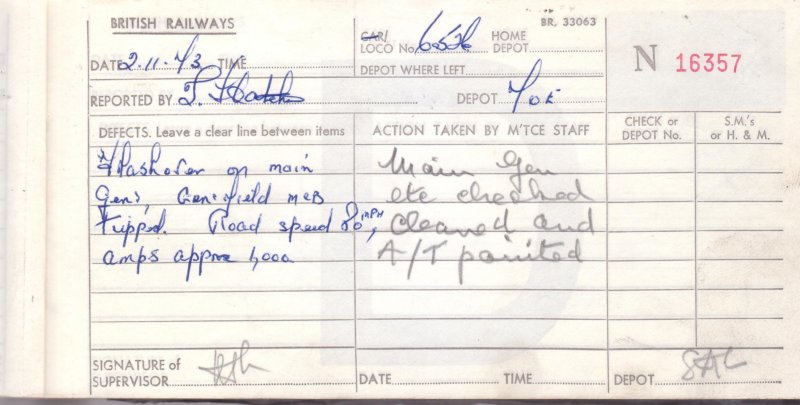 BRITISH RAILWAYS
BR. 33063
CAR/ HOME
LOCO No. DEPOT
N 16357
DATE 2.11.73 TIME
DEPOT WHERE LEFT
REPORTED BY DEPOT TOE
DEFECTS. Leave a clear line between items
ACTION TAKEN BY M'TCE STAFF
CHECK or DEPOT No.
S.M.'s or H. & M.
Flashover on main
Gen, Gen field MCB
tripped. Road speed 80 MPH,
amps approx 1,000
Main Gen
etc checked
cleaned and
A/T painted
SIGNATURE of
SUPERVISOR
DATE TIME DEPOT